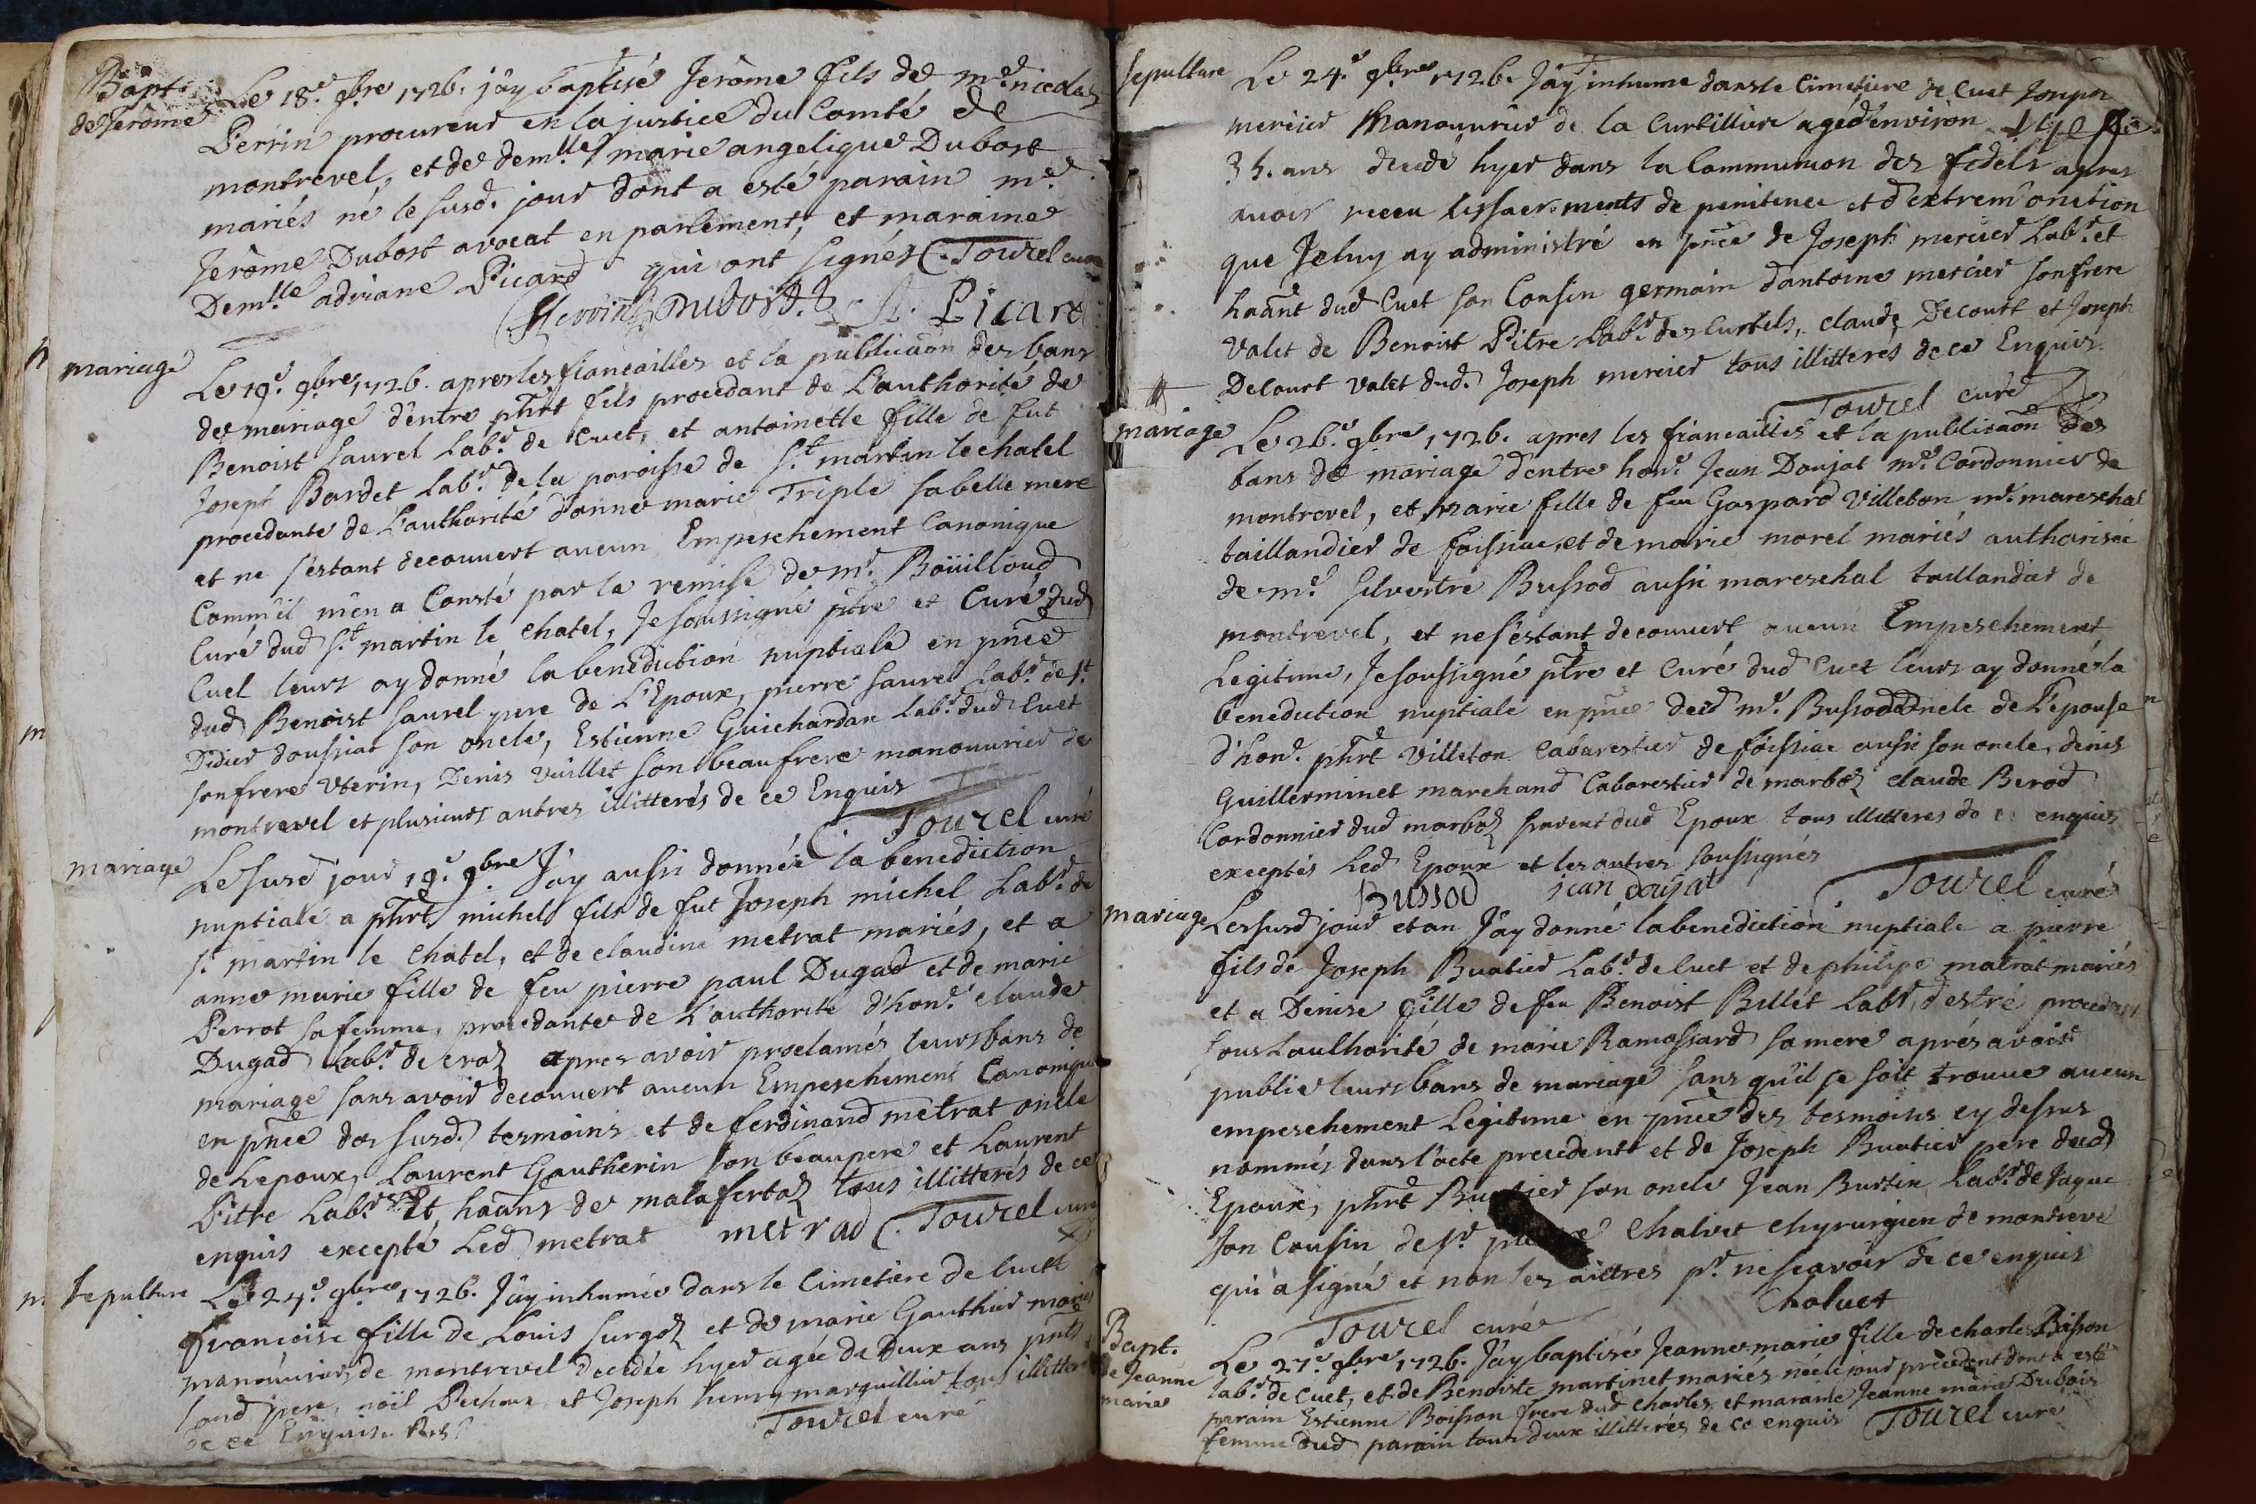 Bapt.
de Jerôme
Le 18.e 9bre 1726. j'ay baptisé Jerôme fils de me. nicolas
Perrin procureur en la justice du Comté de
montrevel, et de demlle marie angelique Dubost
mariés né le susd. jour dont a esté parain me.
Jerôme Dubost avocat en parlement, et maraine
Demlle adriane Picard qui ont signés Tourel curé
Perrin Dubost. Picard
mariage
Le 19.e 9bre 1726. apres les fiancailles et la publicaõn des bans
de mariage d'entre phrt fils procedant de L'authorité de
Benoist Saurel Labr. de Cuet, et antoinette fille de fut
Joseph Bardet Labr. de la paroisse de St. martin le chatel
procedante de L'authorité d'anne marie Triple sa belle mere
et ne s'éstant decouvert aucun Empeschement Canonique
Comm'il m'en a Consté par la remise de mr. Boüilloud
Curé dud St. martin le chatel, Je soussigné ptre et Curé dud
Cuet leurs ay donné la benediction nuptiale en pnce
dud Benoist Saurel pere de L'Epoux, pierre Saurel Labr. de St.
Didier doussiat son oncle, Estienne Guichardan Labr. dud Cuet
son frere Uterin, Denis Vuillet son beaufrere manouvrier de
montrevel et plusieurs autres illitterés de ce Enquis
Tourel curé
mariage
Le susd jour 19.e 9bre J'ay aussi donnée la benediction
nuptiale a phrt michel fils de fut Joseph michel Labr. de
St martin le chatel, et de claudine metrat mariés, et a
anne marie fille de feu pierre paul Dugad et de marie
Perrot sa femme, procedante de L'authorité d'honr. claude
Dugad Labr. de cras apres avoir proclamés leurs bans de
mariage sans avoir decouvert aucun Empeschement Canonique
en pnce des susd. tesmoins et de ferdinand metrat oncle
de Lepoux, Laurent Gautherin son beaupere et Laurent
Pitre Labrs. et haans de malafertas tous illitterés de ce
enquis excepté Led metrat metrad Tourel curé
Sepulture
Le 24.e 9bre 1726. J'ay inhumée dans le Cimetiere de Cuet
francoise fille de Louis Surgos et de marie Gauthier mariés
manouvriers de montrevel decedée hyer agée de Deux ans pnts
Loud pere, noël Pechoux et Joseph henry marguillier tous illitterés
de ce Enquis
Tourel curé
Sepulture
Le 24.e 9bre 1726. J'ay inhumé dans le Cimetiere de Cuet Joseph
mercier manouvrier de la Curtilliere agé d'environ
35. ans decedé hyer dans la Communion des fidels apres
avoir receu les sacrements de penitence et d'extrem'onction
que Je luy ay administré en pnce de Joseph mercier Labr. et
haãnt dud Cuet son Cousin germain d'antoine mercier son frere
valet de Benoist Pitre Labr. des Curtels, claude Decourt et Joseph
Decourt valet dud. Joseph mercier tous illitterés de ce Enquis.
Tourel curé
mariage
Le 26.e 9bre 1726. apres les fiancailles et la publicaõn des
bans de mariage d'entre honr. Jean Doujat me. Cordonnier de
montrevel, et marie fille de feu Gaspard Villeton me. mareschal
taillandier de foissiac, et de marie morel mariés authorisée
de me. Silvestre Bussod aussi mareschal taillandier de
montrevel, et ne s'éstant decouvert aucun Empeschement
Legitime, Je soussigné ptre et Curé dud Cuet leurs ay donné la
benediction nuptiale en pnce dud me. Bussod oncle de L'epouse
d'honr. phrt Villeton Cabarestier de foissiac aussi son oncle, denis
Guillerminet marchand Cabarestier de marbos claude Berod
Cordonnier dud marbos parent dud Epoux tous illitteres de ce enquis
exceptés Led Epoux et les autres soussignés
Bussod jean doujat Tourel curé
mariage
Le susd jour et an J'ay donné la benediction nuptiale a pierre
fils de Joseph Buatier Labr. de Cuet et de philipe matrat mariés
et a Denise fille de feu Benoist Billet Labr. destré procedant
sous L'authorité de marie Ramassard sa mere aprés avoir
publié leurs bans de mariage sans qu'il se soit trouvé aucun
empeschement Legitime en pnce des tesmoins cy dessus
nommés dans l'acte precedent et de Joseph Buatier pere dud
Epoux, phrt Buatier son oncle Jean Burtin Labr. de Jaque
son Cousin de Sr. Chalvet Chyrurgien de montrevel
qui a signé et non les autres pr. ne scavoir de ce enquis
Chalvet
Tourel curé
Bapt.
de Jeanne
marie
Le 27.e 9bre 1726. J'ay baptisé Jeanne marie fille de charles Boisson
labr. de Cuet, et de Benoiste martinet mariés née le jour precedent dont a esté
parain Estienne Boisson frere dud Charles et maraine Jeanne marie Dubois
femme dud parain tous deux illitterés de ce enquis Tourel curé